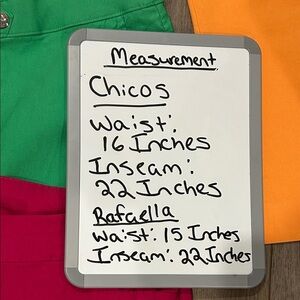 Measurement
Chicos
Waist:
16 Inches
Inseam:
22 Inches
Rafaella
Waist: 15 Inches
Inseam: 22 Inches